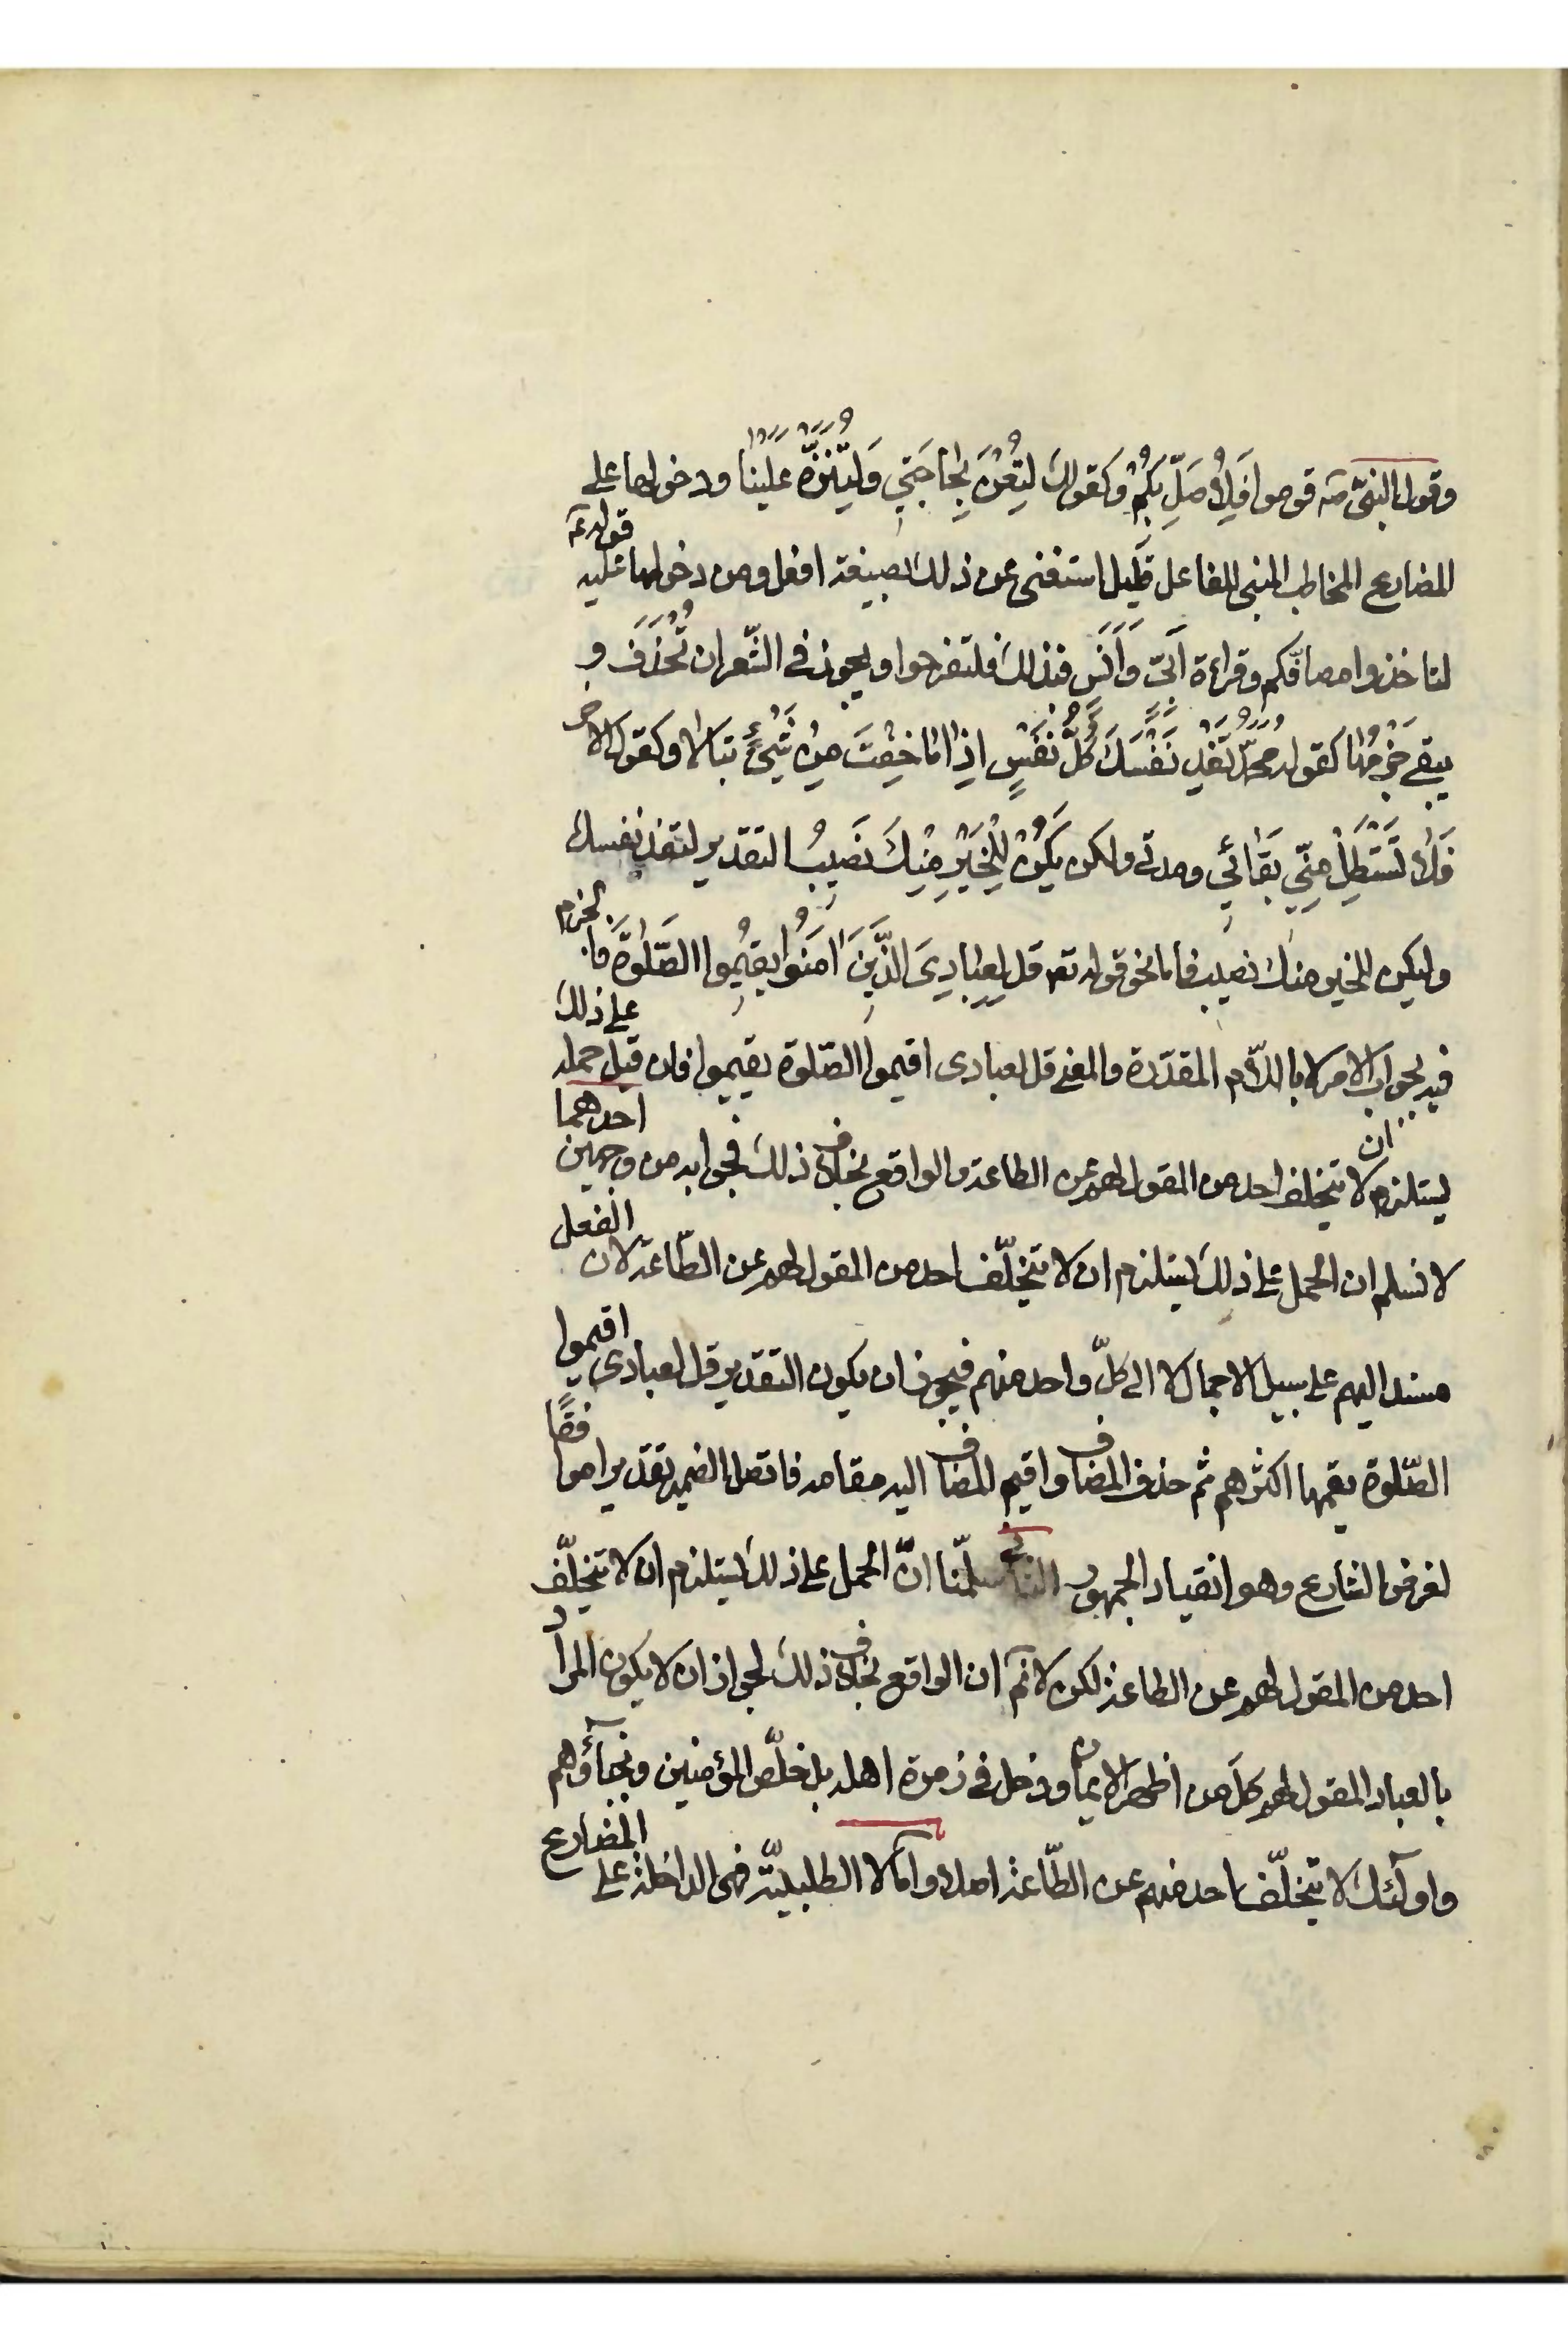 وقول النبي صم قوموا فَلِأُصَلِّ بِكُمْ وكقولك لِتُعْنَ بِحَاجَتِي وَلِيُّنْزَهُ عَلَيْنا ودخولها على
المضارع المخاطب المبنى للفاعل قليل استغنى عن ذلك بصيغة افعل ومن دخولها عليه قوله عم
لتاخذوا مصافّكم وقراءة اُبَىّ وَاَنَسٍ فبذلك فلتفرحوا ويجوز فى الشّعر ان تُحْذَفَ و
يبقى جَزْمُهَا كقوله مُحَمَّدُ تَفْدِ نَفْسَكَ كُلُّ نَفْسٍ اِذَا مَا خِفْتَ مِنْ شَيْءٍ تبالا وكقول الاخر
فَلاَ تَسْتَطِلْ مِنّي بَقَائِي ومدتى ولكن يَكُنْ لِلْخَيْرِ مِنْكَ نَصِيبُ التقدير لتفد نفسك
وليكن للخير منك نصيب فاما نحو قوله تع قل لِعِبَادِيَ الَّذِينَ اٰمَنُوا يُقِيمُوا الصَّلوٰةَ فالجزم
فيه بجواب الامر لا باللاّم المقدّرة والمعنى قل لعبادى اقيموا الصّلوة يقيموا فان قيل حمله على ذلك
يستلزم ان لا يتخلف احد من المقول لهم عن الطاعة والواقع بخلاف ذلك فجوابه من وجهين احدهما
لا نسلم ان الحمل على ذلك يستلزم ان لا يتخلّف احد من المقول لهم عن الطّاعة لان الفعل
مسند اليهم على سبيل الاجمال لا الى كلّ واحد منهم فيجوز ان يكون التقدير قل لعبادى اقيموا
الصّلوة يقمها اكثرهم ثم حذف المضاف واقيم المضاف اليه مقامه فاتصل الضمير تقديرا موافقًا
لغرض الشارع وهو انقياد الجمهور الثانى سلّمنا انّ الحمل على ذلك يستلزم ان لا يتخلّف
احد من المقول لهم عن الطاعة لكن لا نم ان الواقع بخلاف ذلك لجواز ان لا يكون المراد
بالعباد المقول لهم كلّ من اظهر الايمان ودخل فى زمرة اهله بل خلّص المؤمنين ونجباؤهم
واولٰئك لا يتخلّف احد منهم عن الطّاعة اصلا وامّا لا الطلبيّة فهى الداخلة على المضارع